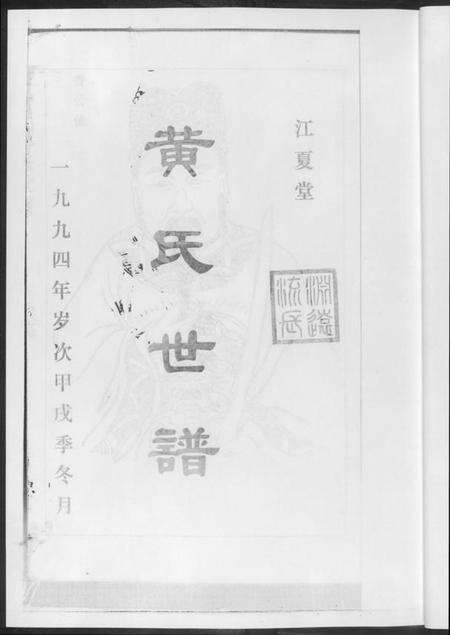 江夏堂
渊远流长
黄氏世譜
一九九四年岁次甲戌季冬月